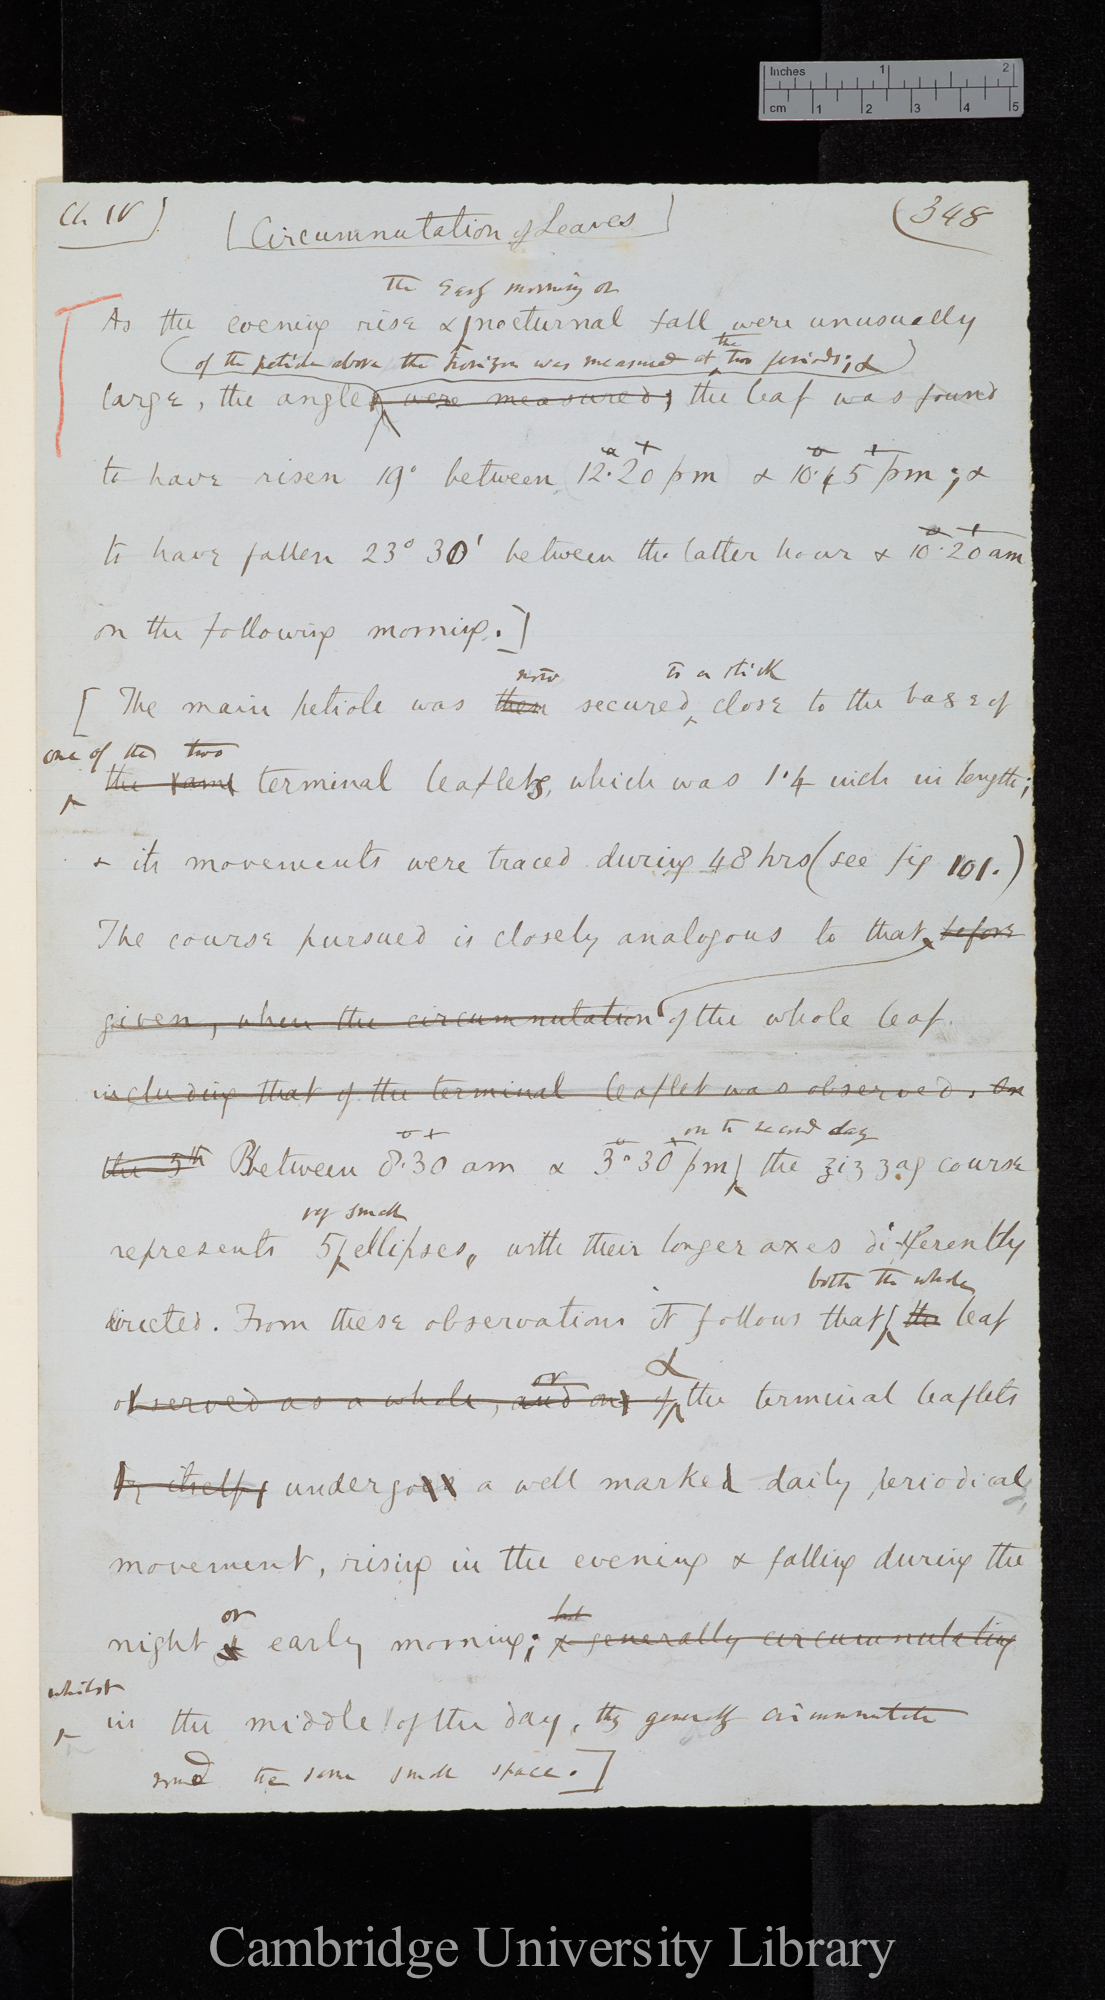 Inches 1 2
cm 1 2 3 4 5
Ch IV]
[Circumnutation of Leaves]
(348
the early morning or
As the evening rise & nocturnal fall were unusually
the
(of the petiole above the horizon was measured at two periods; &)
large, the angle were measured; the leaf was found
to have risen 19° between 12.20 pm & 10.45 pm; &
to have fallen 23° 30' between the latter hour & 10.20 am
on the following morning.]
now to a stick
[The main petiole was then secured, close to the base of
one of the two
the same terminal leaflets, which was 1.4 inch in length;
& its movements were traced during 48 hrs (see fig 101.)
The course pursued is closely analogous to that before
given, when the circumnutation of the whole leaf.
including that of the terminal leaflet was observed. On
on the second day
the 5th Between 8.30 am & 3.30 pm the zigzag course
very small
represents 5 ellipses, with their longer axes differently
both the whole
directed. From these observations it follows that the leaf
or &
observed as a whole, and one of the terminal leaflets
by itself, undergoes a well marked daily periodical
movement, rising in the evening & falling during the
or but
night & early morning; & generally circumnutating
whilst
in the middle of the day, they generally circumnutate
round the same small space.]
Cambridge University Library